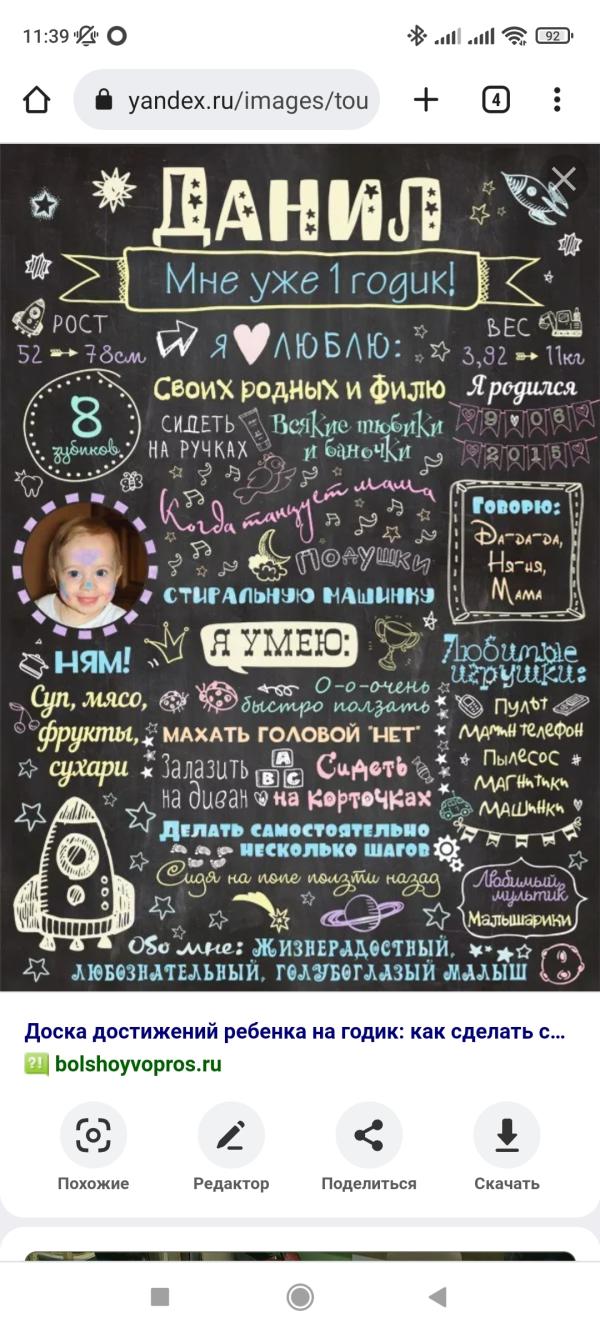 11:39
92
yandex.ru/images/tou
4
ДАНИЛ
Мне уже 1 годик!
РОСТ
52 78см
Я ЛЮБЛЮ:
ВЕС
3,92 11кг
Своих родных и Филю
Я родился
9 06
2015
8
зубиков
СИДЕТЬ
НА РУЧКАХ
Всякие тюбики
и баночки
Когда танцует мама
ПОДУШКИ
СТИРАЛЬНУЮ МАШИНКУ
Говорю:
Да-да-да,
Ня-ня,
Мама
НЯМ!
Суп, мясо,
фрукты,
сухари
Я УМЕЮ:
О-о-очень
быстро ползать
МАХАТЬ ГОЛОВОЙ "НЕТ"
Залазить
на диван
A
B C
Сидеть
на корточках
Делать самостоятельно
несколько шагов
Сидя на попе ползти назад
Любимые
игрушки:
Пульт
Мамин телефон
Пылесос
Магнитики
Машинки
Любимый
мультик
Малышарики
Обо мне: Жизнерадостный,
любознательный, голубоглазый малыш
Доска достижений ребенка на годик: как сделать с...
?!
bolshoyvopros.ru
Похожие
Редактор
Поделиться
Скачать